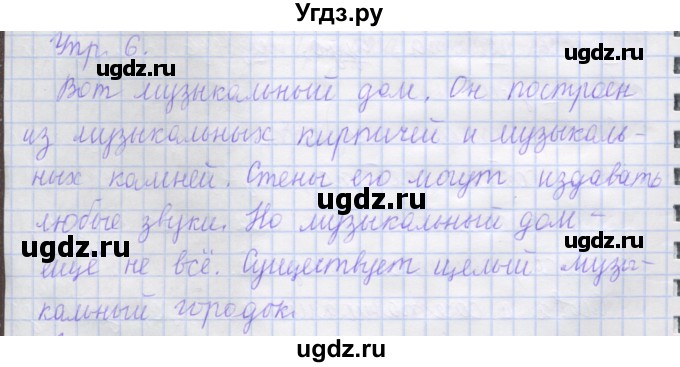 Угдз.ру
Упр. 6.
ugdz.ru
ugdz.ru
Вот музыкальный дом. Он построен
из музыкальных кирпичей и музыкаль-
ных камней. Стены его могут издавать
ugdz.ru
любые звуки. Но музыкальный дом -
ugdz.ru
ugdz.ru
ещё не всё. Существует целый музы-
кальный городок.
ugdz.ru
ugdz.ru